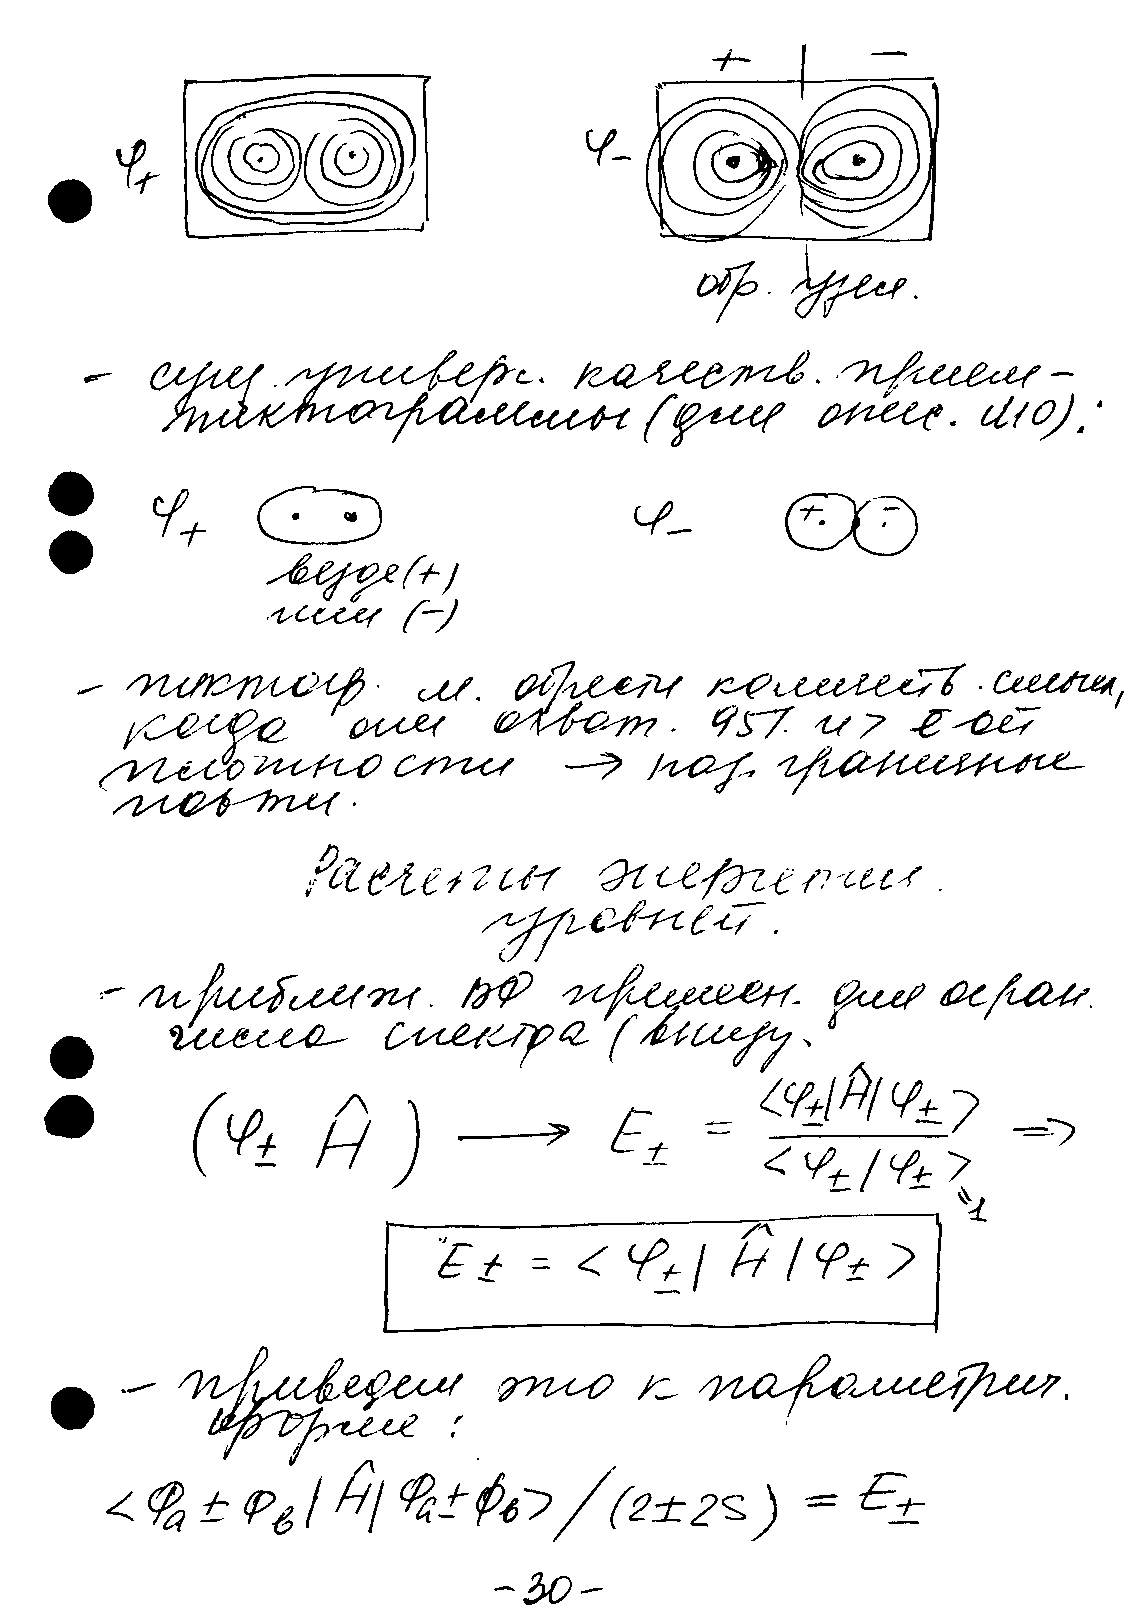 + | −
φ₊ φ₋
обр. узел.
- сущ. универс. качеств. прием -
пиктограммы (для опис. МО):
φ₊ φ₋ + −
везде (+)
или (−)
- пиктогр. м. обрести количеств. смысл,
когда они охват. 95% из Σ-ой
плотности → наз. граничные
пов-ти.
Расчеты энергетич.
уровней.
- приближ. ВФ примен. для огран.
числа спектра (внизу.
(φ± Ĥ) ⟶ E± = <φ±|Ĥ|φ±> / <φ±|φ±> =1 =>
E± = <φ±| Ĥ |φ±>
- приведем это к параметрич.
форме :
<φa ± φв | Ĥ | φa ± φв> / (2 ± 2S) = E±
- 30 -